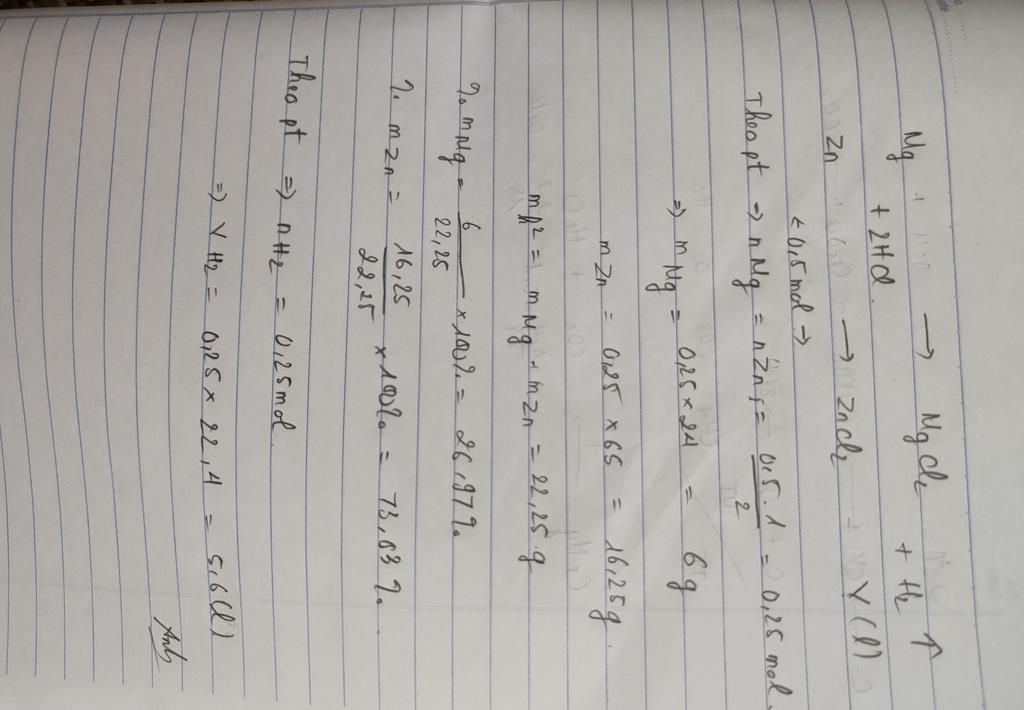 Mg → MgCl2 + H2 ↑
+ 2HCl
Zn → ZnCl2 V(l)
← 0,5 mol →
Theo pt ⇒ nMg = nZn = 0,5.1/2 = 0,25 mol
⇒ mMg = 0,25 × 24 = 6g
mZn = 0,25 × 65 = 16,25g.
mh² = mMg + mZn = 22,25 g
% mMg = 6/22,25 × 100% = 26,97%
% mZn = 16,25/22,25 × 100% = 73,03 %.
Theo pt ⇒ nH2 = 0,25 mol.
⇒ V H2 = 0,25 × 22,4 = 5,6(l)